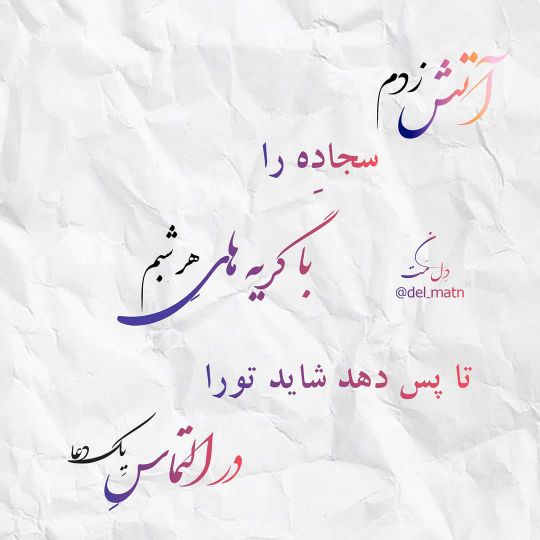 آتش زدم
سجادِه را
با گریه هایِ هر شبم
دِل مَتن
@del_matn
تا پس دهد شاید تورا
در التماسِ یک دعا